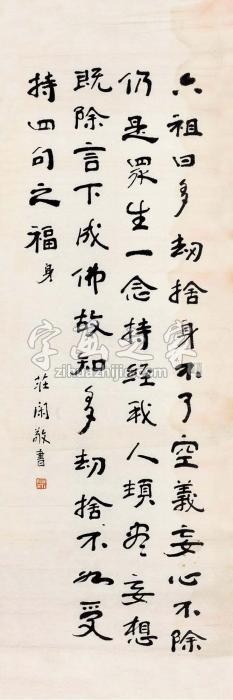 六祖曰多劫捨身不了空義妄心不除
仍是眾生一念持經我人頓盡妄想
既除言下成佛故知多劫捨不如受
持四句之福 身
莊閑敬書
字画之家
zihuazhijia.com